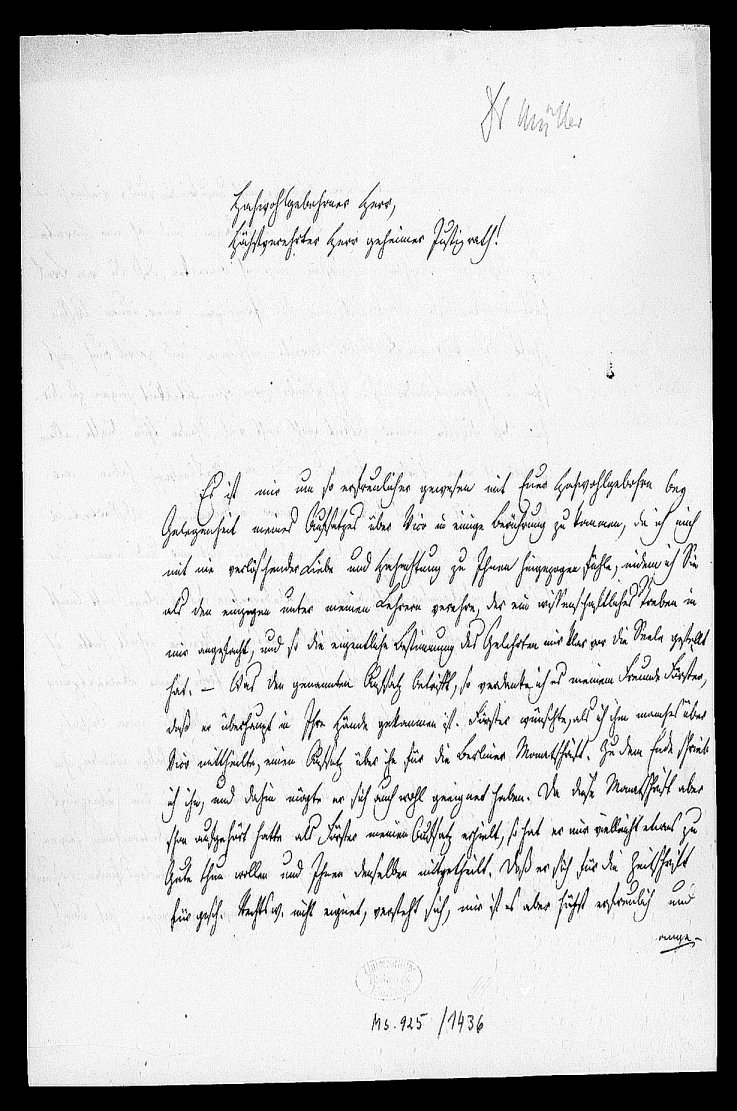 Dr Müller
Hochwohlgebohrner Herr,
Höchstverehrter Herr geheimer Justizrath!
Es ist mir um so erfreulicher gewesen mit Euer Hochwohlgebohrn bey
Gelegenheit meines Aufsatzes über Vico in einige Berührung zu kommen, da ich mich
mit nie verlöschender Liebe und Hochachtung zu Ihnen hingezogen fühle, indem ich Sie
als den einzigen unter meinen Lehrern verehre, der ein wissenschaftliches Treiben in
mir angefacht, und so die eigentliche Bestimmung des Gelehrten mir klar vor die Seele gestellt
hat. — Was den genannten Aufsatz betrifft, so verdanke ich es meinem Freunde Förster,
daß er überhaupt in Ihre Hände gekommen ist. Förster wünschte, als ich ihm manches über
Vico mittheilte, einen Aufsatz über ihn für die Berliner Monatschrift. Zu dem Ende schrieb
ich ihn, und dahin mögte er sich auch wohl geeignet haben. Da diese Monatschrift aber
schon aufgehört hatte als Förster meinen Aufsatz erhielt, so hat er mir vielleicht etwas zu
Gute thun wollen und Ihnen denselben mitgetheilt. Daß er sich für die Zeitschrift
für gesch. Rechtsw. nicht eignet, versteht sich, mir ist es aber höchst erfreulich und
ange-
Ms. 925 /1436